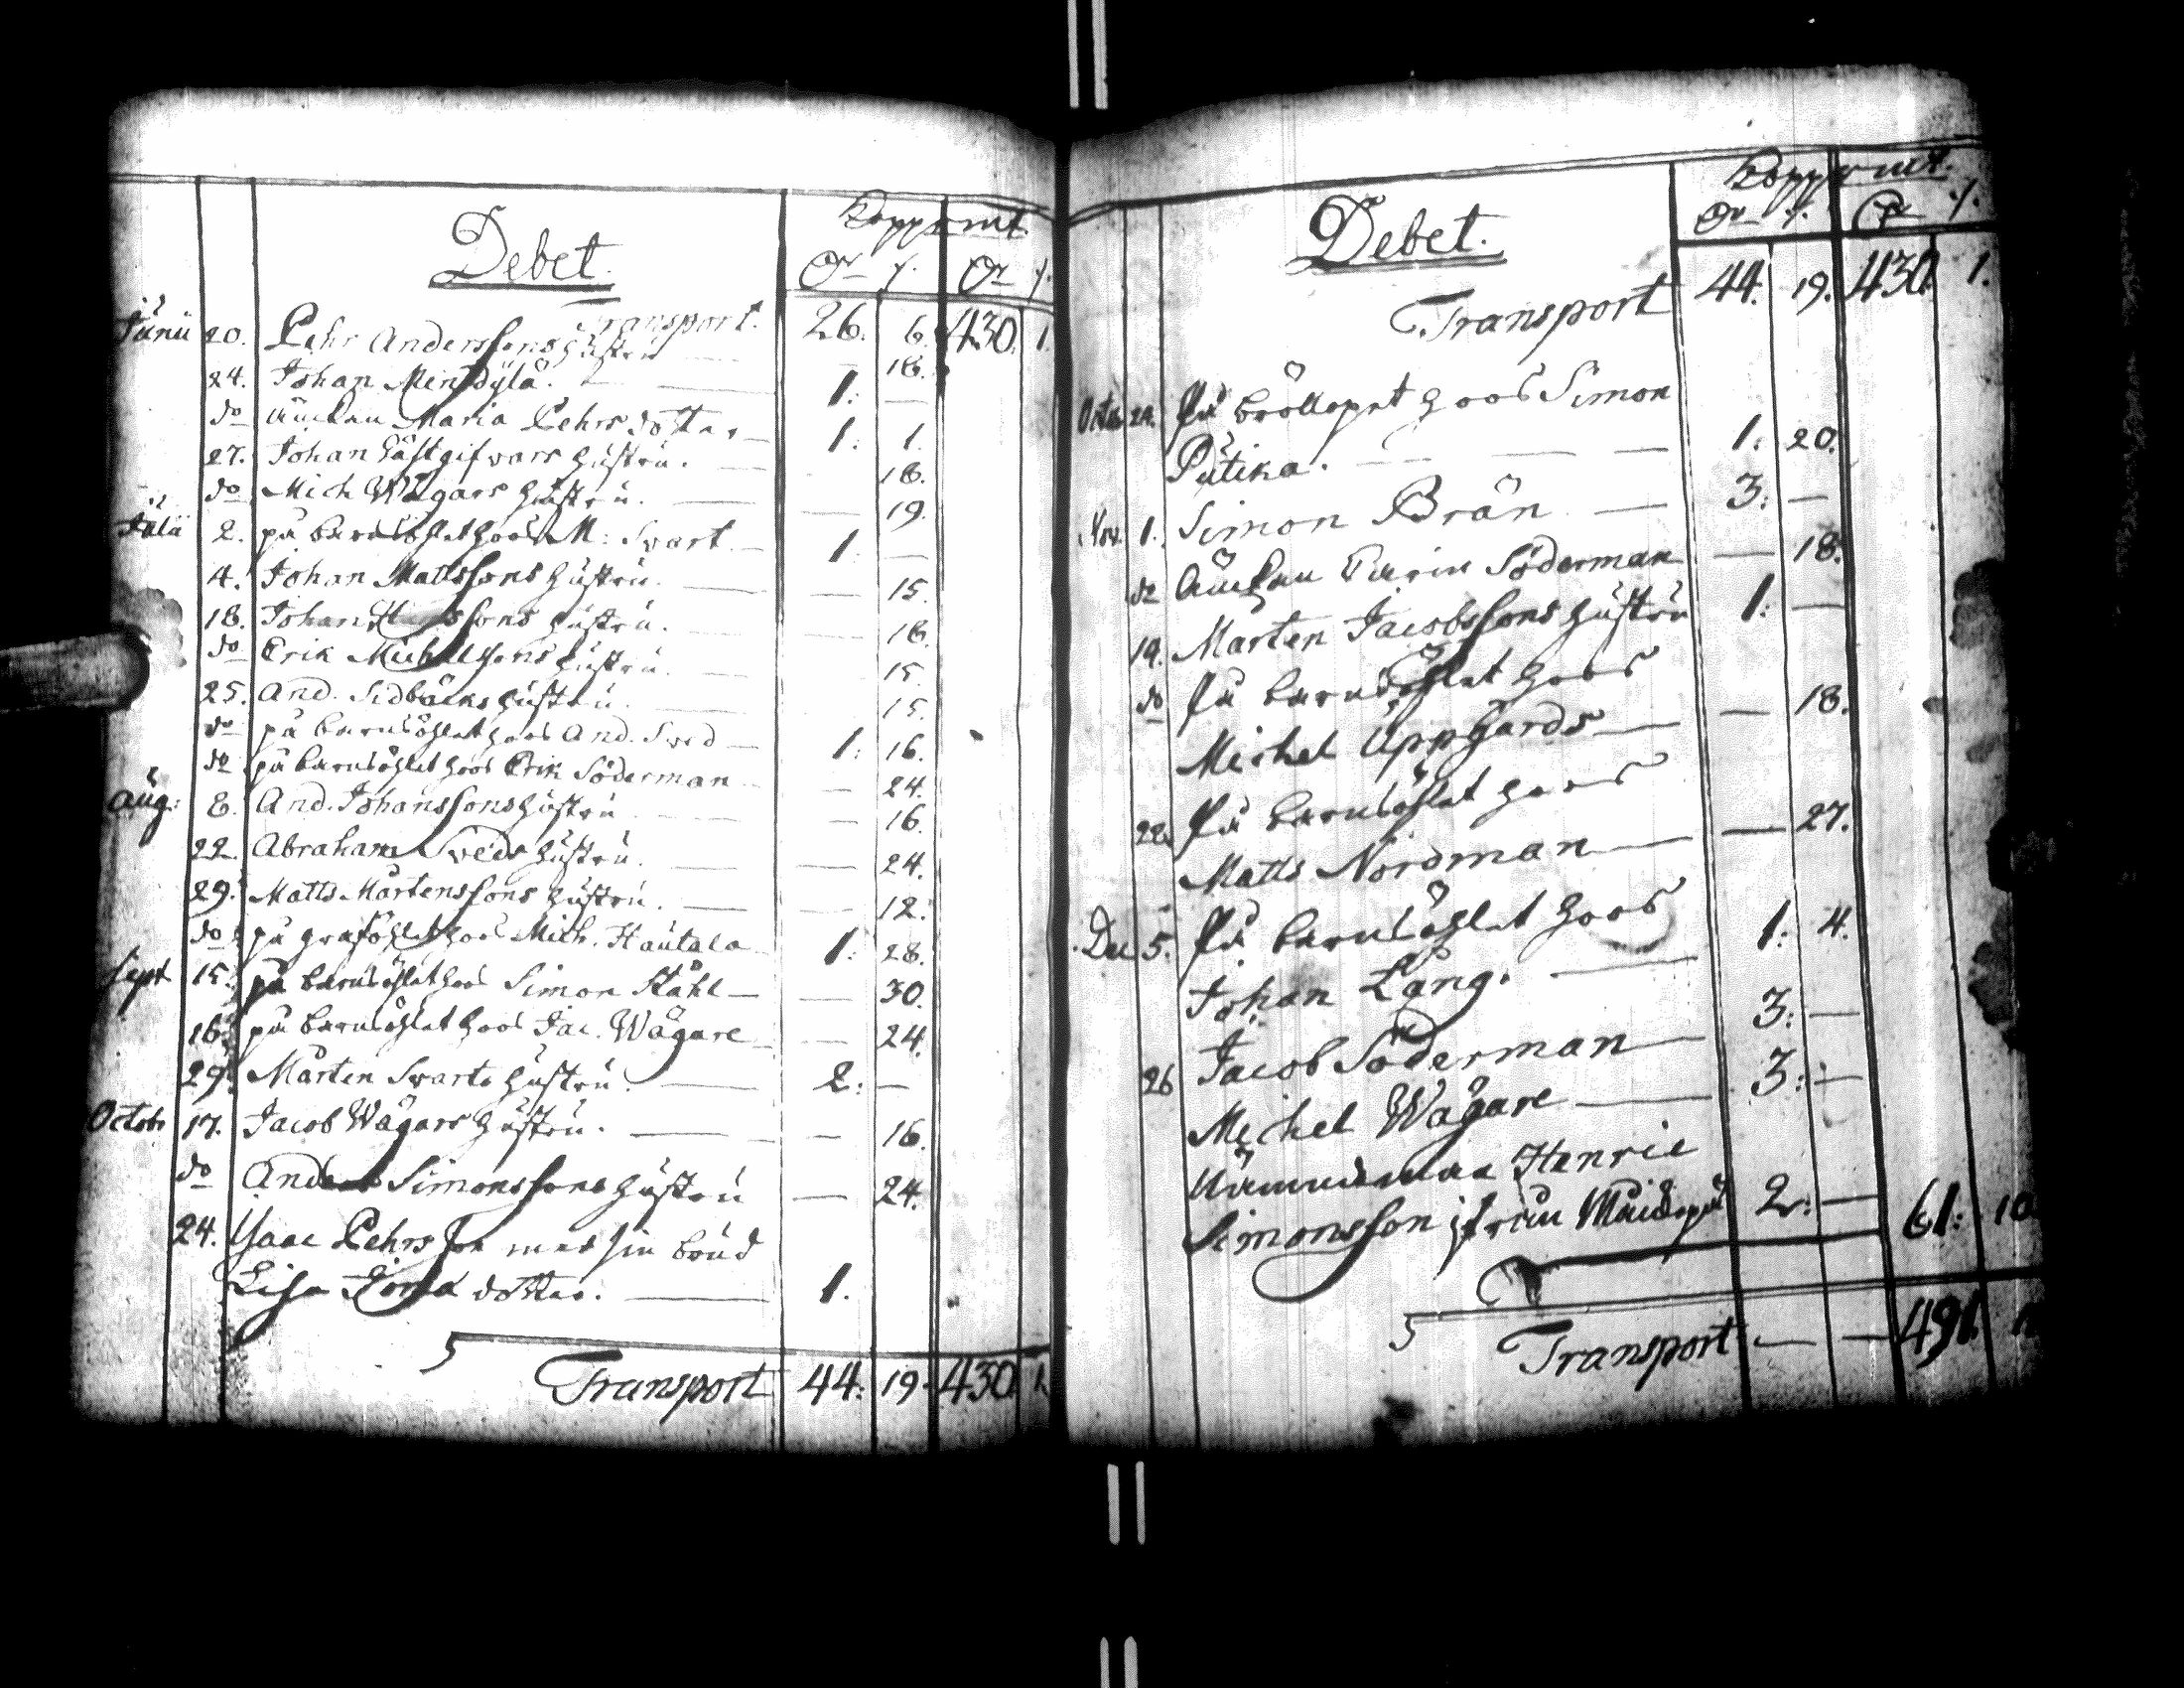 Debet.
Koppar mt.
Or /. Or /.
Transport. 26. 6. 430. 1.
Junii 20. Pehr Anderssons hustru — 18.
24. Johan Mensdÿlä. — 1: —
do Änckan Maria Pehrs dotter — 1: 1.
27. Johan Gästgifvars hustru. — 18.
do Mich Wägars hustru. — 19.
Julii 2. på barnsöhlet hoos M: Svart. — 1: —
4. Johan Mattssons hustru. — 15.
18. Johan hustru. — 18.
do Erik Michelssons hustru. — 15.
25. And. Sidbäcks hustru. — 15.
do på barnsöhlet hoos And. Sved — 1: 16.
do på barnsöhlet hoos Erik Söderman — 24.
Aug: 8. And. Johanssons hustru — 16.
22. Abraham Sveds hustru. — 24.
29. Matts Mårtenssons hustru. — 12.
do på graföhlet hoos Mich. Hautala 1: 28.
Sept 15. på barnsöhlet hoos Simon Ståhl — 30.
16. på barnsöhlet hoos Jac. Wägare — 24.
29. Mårten Svarts hustru. — 2: —
Octob 17. Jacob Wägars hustru. — 16.
do Anders Simonssons hustru — 24.
24. Isaac Pehrsson med sin brud
Lisa dotter. — 1.
Transport 44: 19. 430. 1.
Debet.
Koppar mt.
Or /. Or /.
Transport 44. 19. 430. 1.
Octob 24. På bröllopet hoos Simon
Putika. — 1: 20.
Nov. 1. Simon Brän — 3: —
do Änckan Carin Söderman — 18.
19. Marten Jacobssons hustru 1: —
do På barnsöhlet hoos
Michel Uppgårds — 18.
22. På barnsöhlet hoos
Matts Nordman — 27.
Dec 5. På barnsöhlet hoos
Johan Lång. — 1: 4.
26 Jacob Söderman — 3: —
Michel Wägare — 3: —
Nämndeman Henric
Simonsson 2: — 61: 10
Transport — — 491.